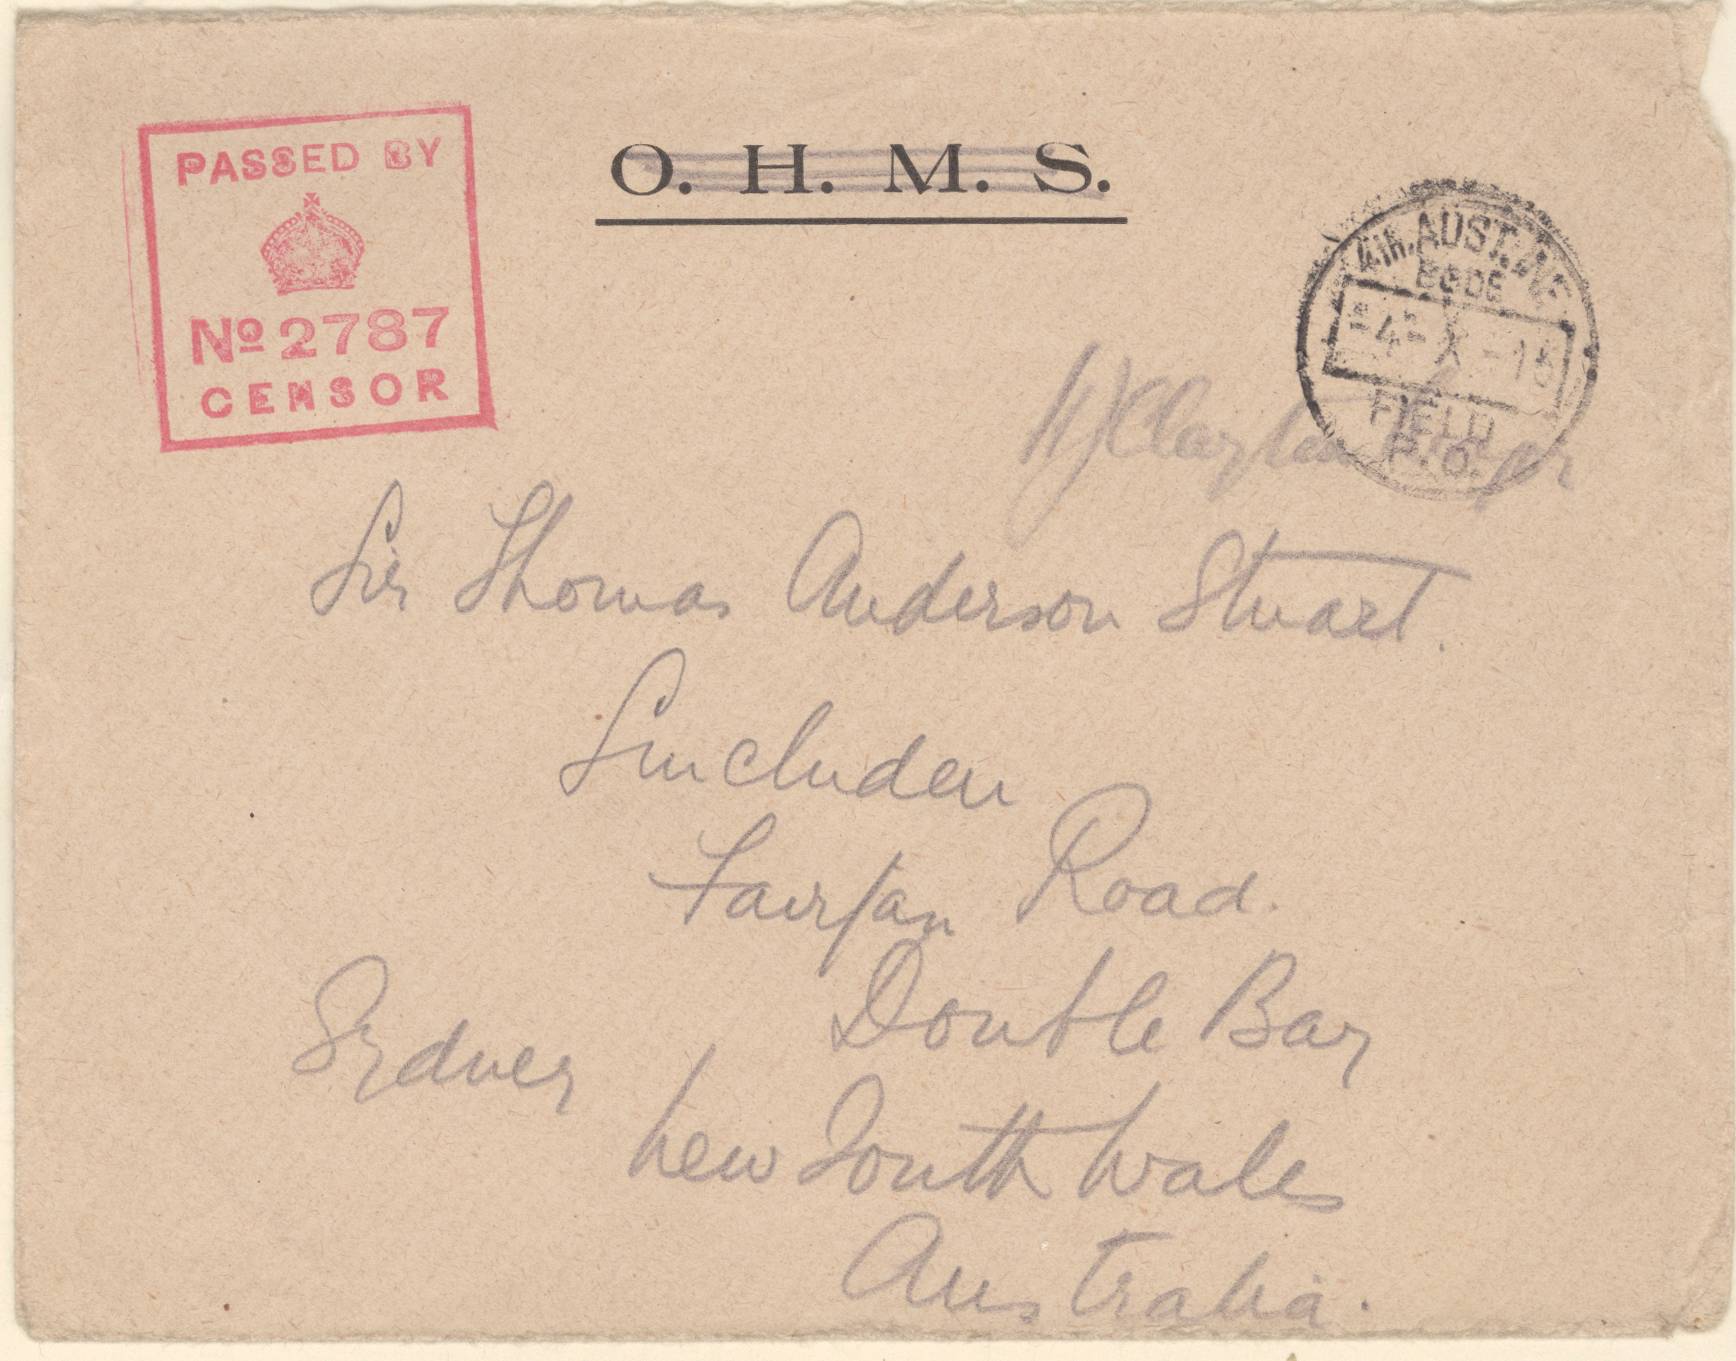 PASSED BY
No 2787
CENSOR
O. H. M. S.
4th. AUST. INF
BGDE
4 - X - 15
FIELD
P. O.
Clayton
Sir Thomas Anderson Stuart.
Lincluden
Fairfax Road.
Double Bay
Sydney
New South Wales
Australia.